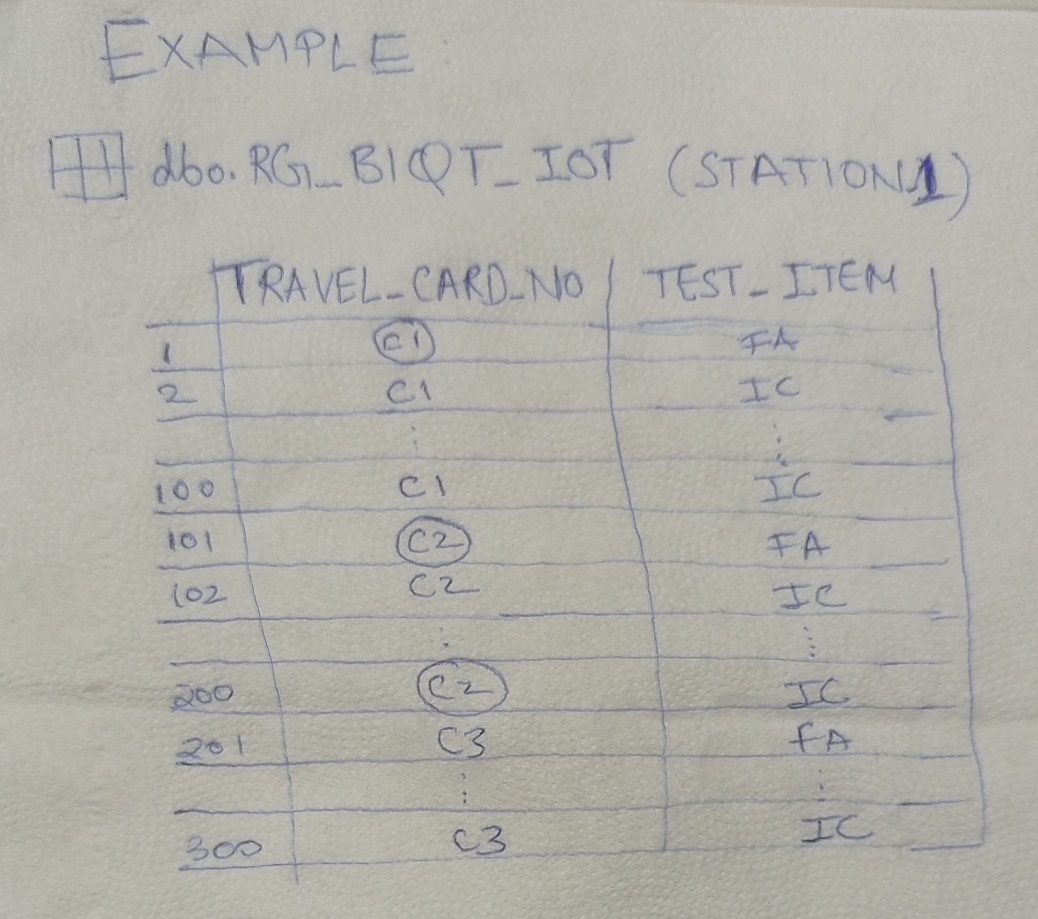 EXAMPLE:
dbo.RG_BIQT_IOT (STATION1)
TRAVEL_CARD_NO TEST_ITEM
1 C1 FA
2 C1 IC
⋮ ⋮
100 C1 IC
101 C2 FA
102 C2 IC
⋮ ⋮
200 C2 IC
201 C3 FA
⋮ ⋮
300 C3 IC